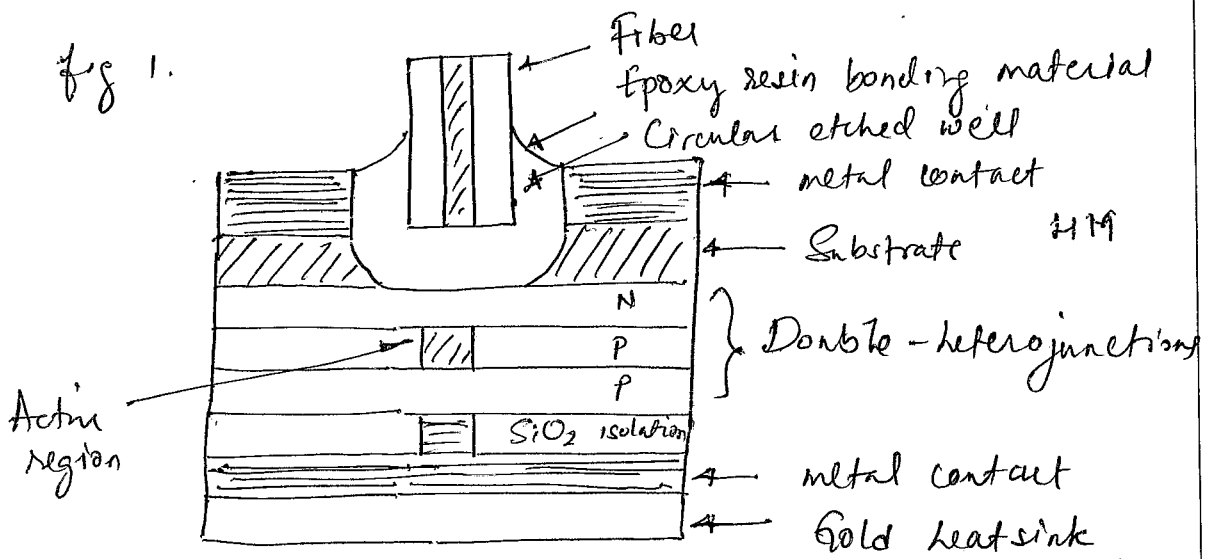 fig 1.
Fiber
Epoxy resin bonding material
Circular etched well
metal contact
Substrate
N
P
Double-heterojunctions
P
Active
region
SiO2 isolation
metal contact
Gold heatsink